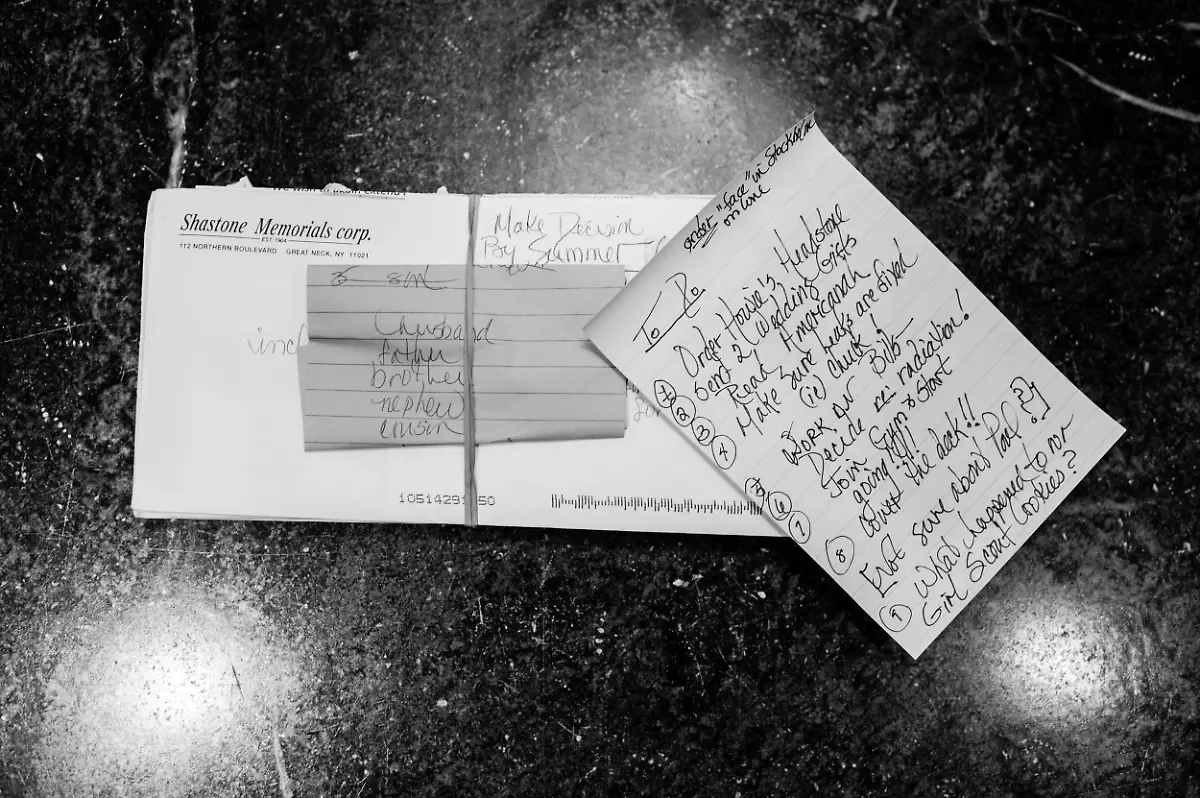 Shastone Memorials corp.
EST. 1904
112 NORTHERN BOULEVARD GREAT NECK, NY 11021
Make Decision
By Summer
husband
father
brother
nephew
cousin
10514291 50
order "Face" in Stockholm
on line
To Do
① Order Howie's Headstone
② Send 2 Wedding Gifts
③ Read Americanah
④ Make sure leaks are fixed
(ie) check!
⑤ Work on Bills
⑥ Decide radiation!
⑦ Join Gym & Start
going!!!!
⑧ count the deck!!
sure about Pool
⑨ What happened to our
Girl Scout Cookies?